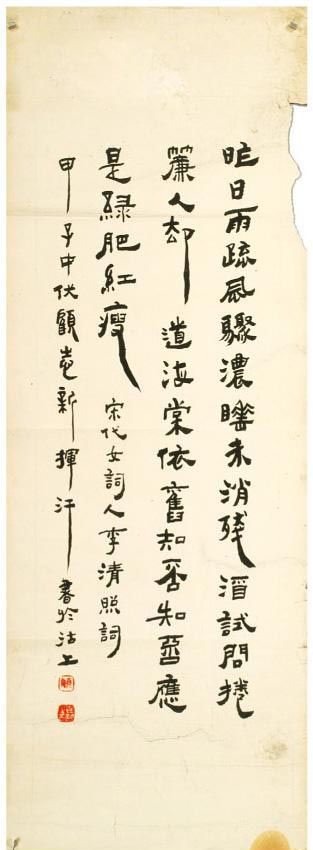 昨日雨疏風驟濃睡未消殘酒試問捲
簾人却道海棠依舊知否知否應
是綠肥紅瘦宋代女詞人李清照詞
甲子中伏顧志新揮汗書於沽上